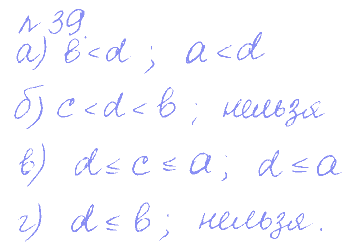 № 39.
а) в < d ; a < d
б) c < d < в ; нельзя
в) d ≤ c ≤ a ; d ≤ a
г) d ≤ в ; нельзя.